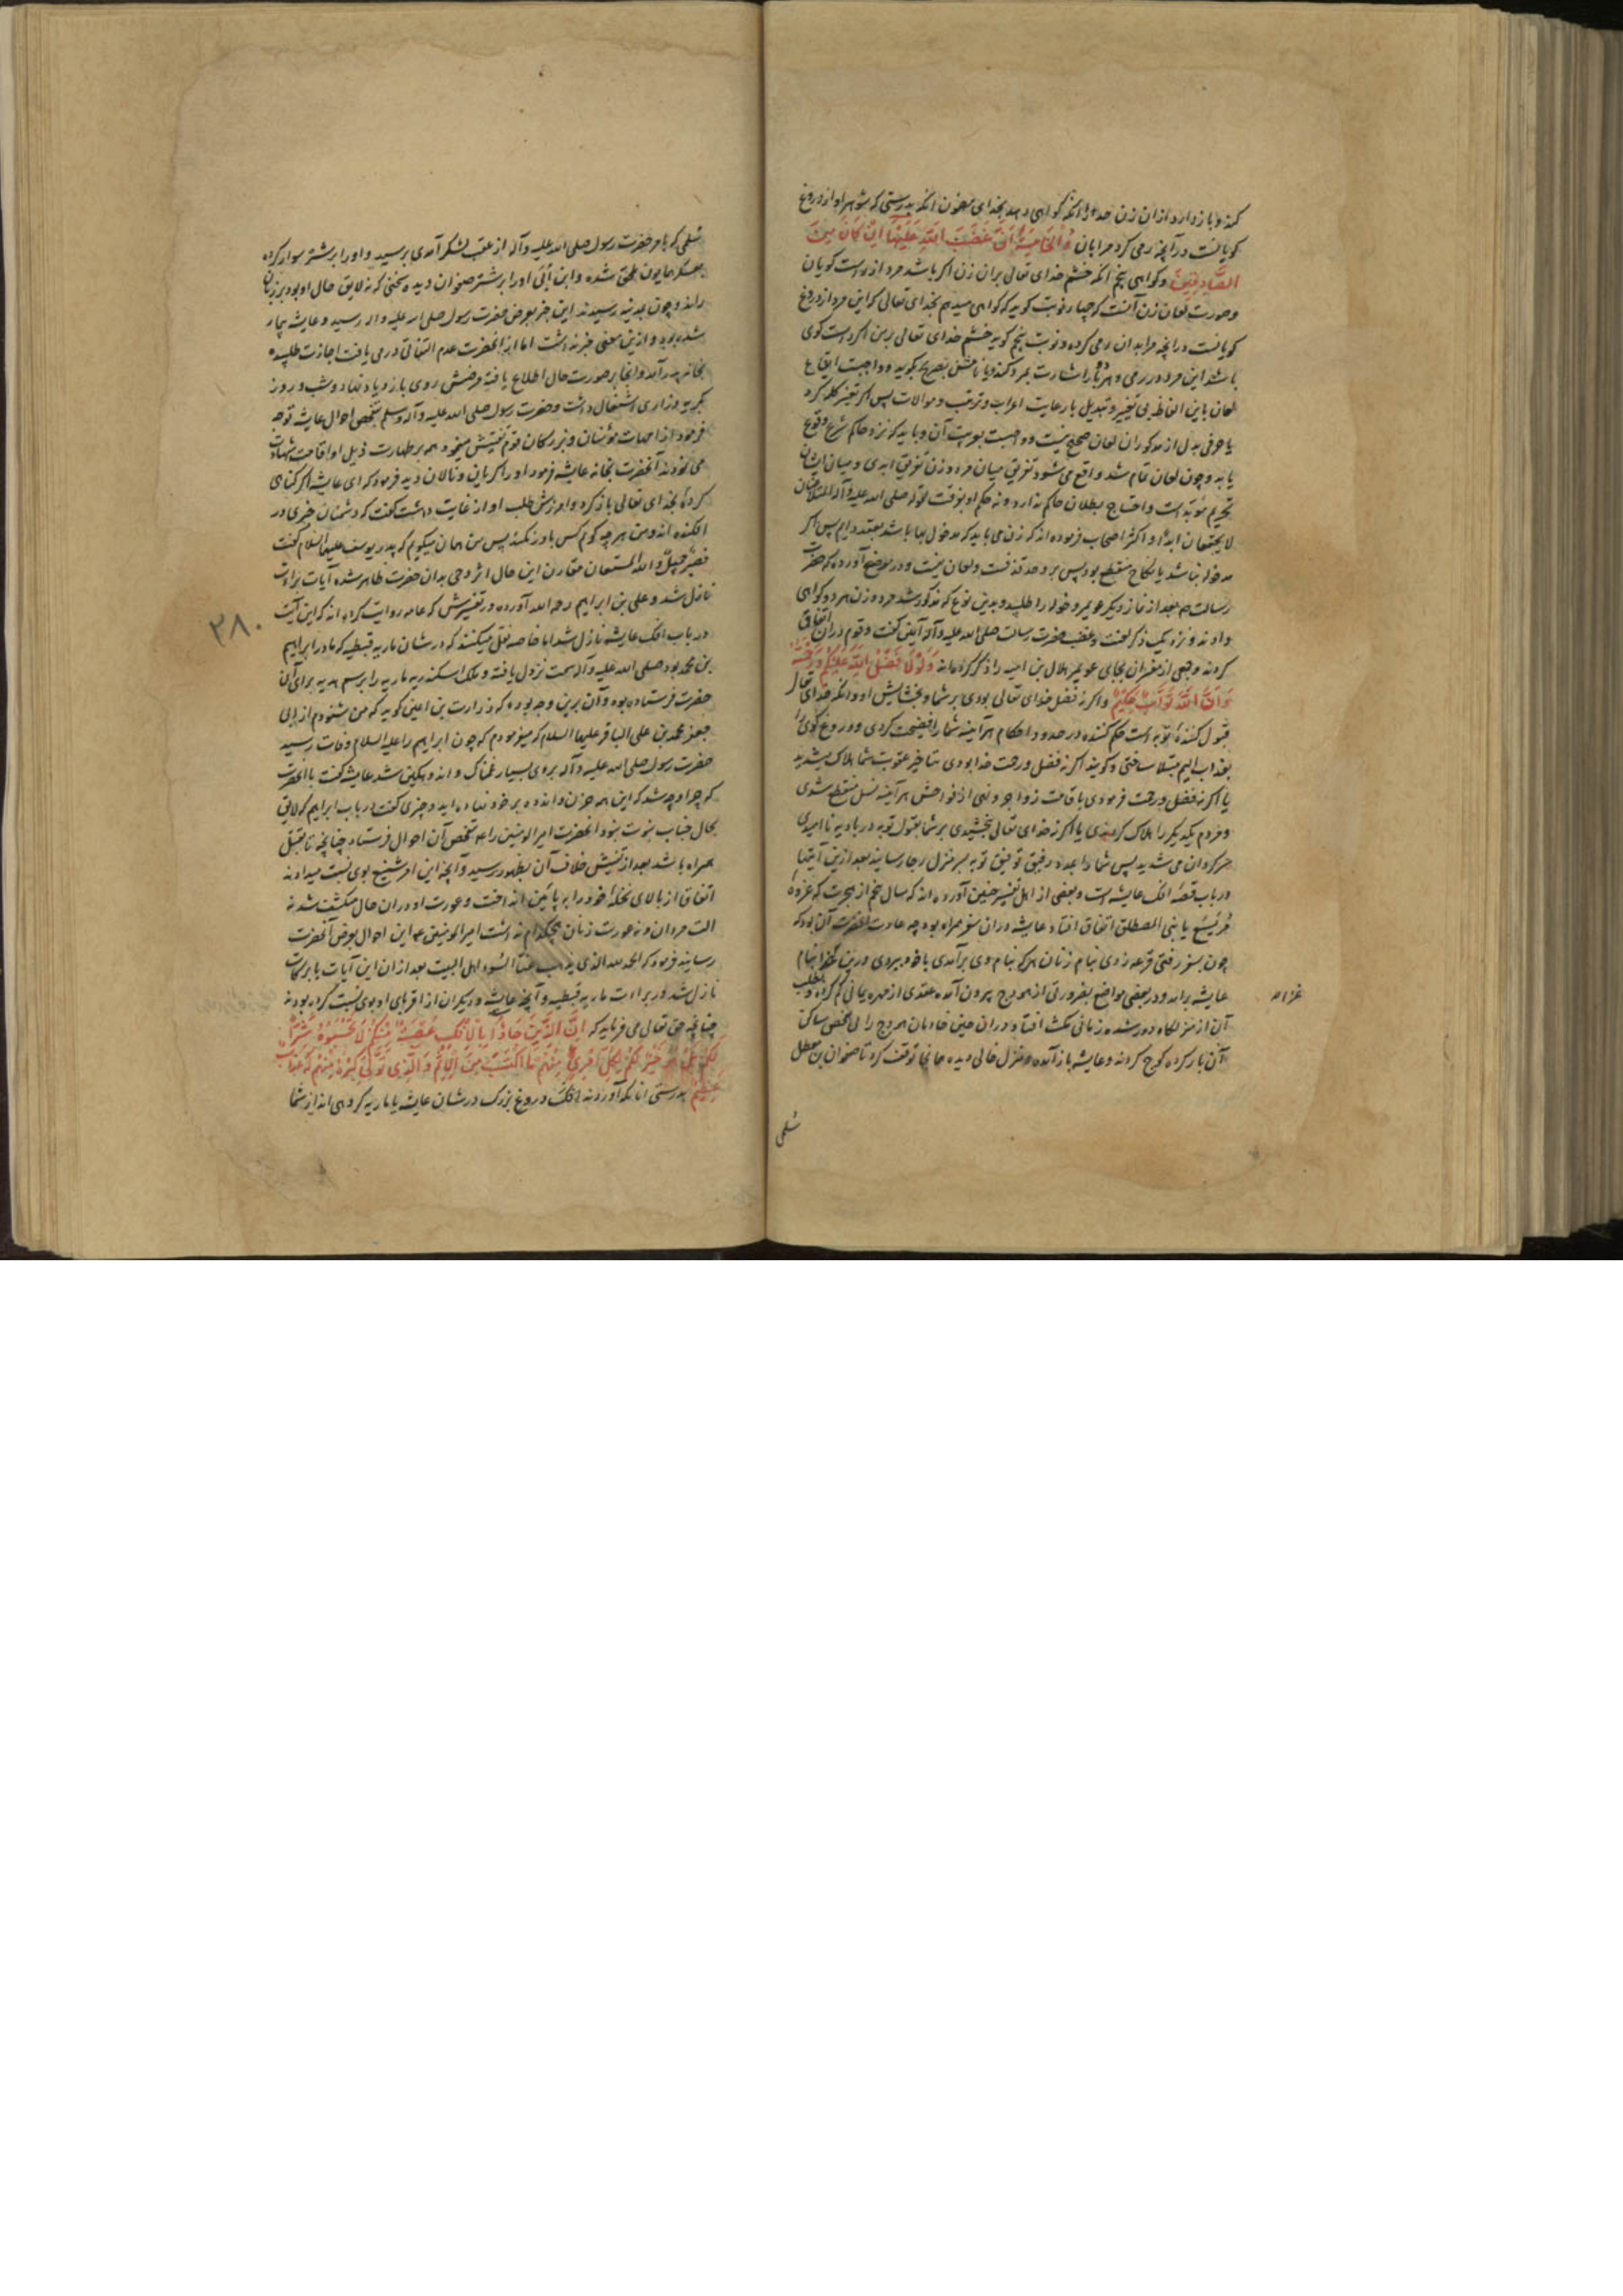 کند و باز دارد از ان زن حد را انکه کواهی دهد بخدای مضمون انکه بدرستی که شوهر او از دروغ
کویانست در آنچه رمی کرد مرا بان وَالْخَامِسَةُ اَنَّ غَضَبَ اللّهِ عَلَیْهَا اِنْ کَانَ مِنَ
الصَّادِقِینَ و کواهی پنجم انکه خشم خدای تعالی بران زن اکر باشد مرد از راست کویان
و صورت لعان زن آنست که چهار نوبت کوید که کواهی میدهم بخدای تعالی که این مرد از دروغ
کویانست در انچه مرا بدان رمی کرده و نوبت پنجم کوید خشم خدای تعالی بر من اکر راست کوی
باشد این مرد در رمی و هر دو را اشارت بمرد کند و یا نامش بصریح بکوید و واجبست ایقاع
لعان باین الفاظ بی تغییر و تبدیل با رعایت اعراب و ترتیب و موالات پس اکر تغییر کلمه کرد
یا حرفی بدل از مذکوران لعان صحیح نیست و باید که نزد حاکم شرع وقوع
یابد و چون لعان تمام شد واقع می شود تفریق میان مرد و زن تفریق ابدی و میان ایشان
تحریم مؤبد است و احتیاج ببطلان حاکم ندارد و نه حکم او بفرقت لقوله صلی الله علیه وآله المتلاعنان
لا یجتمعان ابدًا و اکثر اصحاب فرموده اند که زن می باید که مدخول بها باشد بعقد دایم پس اکر
مدخوله نباشد یا نکاح منقطع بود پس برو حد قذفست و لعان نیست و در موضح آورده که حضرت
رسالت ص بعد از نماز دیکر عویمر و خوله را طلبید و بدین نوع که مذکور شد مرد و زن هر دو کواهی
دادند و نزد یک ذکر لعنت و غضب حضرت رسالت صلی الله علیه وآله آمین کفت و قوم در ان اتفاق
کردند و بعضی از مفسران بجای عویمر هلال بن امیه را ذکر کرده اند وَلَوْلَا فَضْلُ اللّهِ عَلَیْکُمْ وَرَحْمَتُهُ
وَاَنَّ اللّهَ تَوَّابٌ حَکِیمٌ و اکر نه فضل خدای تعالی بودی بر شما و بخشایش او و انکه خدای تعالی
قبول کنندۀ توبه است حکم کننده در حدود و احکام هر آینه شما را فضیحت کردی و دروغ کوی را
بعذاب الیم مبتلا ساختی و کویند اکر نه فضل و رحمت خدا بودی بتاخیر عقوبت شما هلاک میشدید
یا اکر نه فضل و رحمت فرمودی باقامت زواجر و نهی از فواحش هر آینه نسل منقطع شدی
و مردم یکدیکر را هلاک کردندی یا اکر نه خدای تعالی بخشیدی بر شما بقبول توبه در بادیه ناامیدی
سرکردان می شدید پس شما را بمدد رفیق توفیق توبه بسر منزل رجا رسانید بعد ازین آیتها
در باب قصۀ افک عایشه است و بعضی از اهل تفسیر چنین آورده اند که سال پنجم از هجرت که غزوۀ
مُرَیْسِیع یا بنی المصطلق اتفاق افتاد عایشه دران سفر همراه بود چه عادت آنحضرت آن بود که
چون بسفر رفتی قرعه زدی بنام زنان هر که بنام وی برآمدی با خود ببردی درین غزا بنام
عایشه برامد و در بعضی مواضع بضرورتی از هودج بیرون آمده عقدی از مهره یمانی کم کرد و بطلب
آن از منزلکاه دور شد و زمانی مکث افتاد و دران حین خادمان هودج را بی تفحص ساکن
آن بار کرده کوچ کردند و عایشه باز آمده منزل خالی دیده همانجا توقف کرد تا صفوان بن معطل
سُلمی
سُلمی که بامر حضرت رسول صلی الله علیه وآله از عقب لشکر آمدی برسید و او را بر شتر سوار کرده
بعسکر همایون ملحق شده و ابن اُبَی او را بر شتر صفوان دیده سخنی که نه لایق حال او بود بر زبان
راند و چون بمدینه رسیدند این خبر بعرض حضرت رسول صلی الله علیه وآله رسید و عایشه بیمار
شده بود و ازین معنی خبر نداشت اما از انحضرت عدم التفاتی در می یافت اجازت طلبیده
بخانه پدر آمد و انجا بر صورت حال اطلاع یافته مرضش روی بازدیاد نهاد و شب و روز
بکریه و زاری اشتغال داشت و حضرت رسول صلی الله علیه وآله وسلم بتفحص احوال عایشه توجه
فرمود از امهات مؤمنان و بزرکان قوم تفتیش مینمود همه بر طهارت ذیل او اقامت شهادت
می نمودند آنحضرت بخانه عایشه فرمود او را کریان و نالان دید فرمود که ای عایشه اکر کناهی
کردۀ بخدای تعالی باز کرد و آمرزش طلب او از غایت دهشت کفت که دشمنان خبری در
افکنده اند و من هر چه کویم کس باور نکند پس من همان میکویم که پدر یوسف علیهما السلام کفت
فَصَبْرٌ جَمِیلٌ وَاللّهُ الْمُسْتَعَان مقارن این حال اثر وحی بدان حضرت ظاهر شده آیات براءت
نازل شد و علی بن ابراهیم رحمه الله آورده در تفسیرش که عامه روایت کرده اند که این آیت
در باب افک عایشه نازل شد اما خاصه نقل میکنند که در شان ماریه قبطیه که مادر ابراهیم
بن محمد بود صلی الله علیه وآله سمت نزول یافته و ملک اسکندریه ماریه را برسم هدیه برای آن
حضرت فرستاده بود و آن برین وجه بوده که زرارت بن اعین کوید که من شنودم از ابی
جعفر محمد بن علی الباقر علیهما السلام که میفرمودم که چون ابراهیم را علیه السلام وفات رسید
حضرت رسول صلی الله علیه وآله بروی بسیار غمناک و اندوهکین شد عایشه کفت با انحضرت
که چرا و چه شد که این همه حزن و اندوه بر خود نهاده اید و چیزی کفت در باب ابراهیم که لایق
بحال جناب نبوت نبود انحضرت امیر المومنین را ع بتفحص آن احوال فرستاد چنانچه تا بقتل
همراه باشد بعد از تفتیش خلاف آن بظهور رسید و آنچه این امر شنیع بوی نسبت میدادند
اتفاق از بالای نخلۀ خود را به پائین انداخت و عورت او دران حال منکشف شد نه
الت مردان و نه عورت زنان هیچکدام نداشت امیر المومنین ع این احوال بعرض آنحضرت
رسانید فرمود که الحمد لله الذی یذهب عنا السُوء اهل البیت بعد ازان این آیات بابرکات
نازل شد در براءت ماریه قبطیه و آنچه عایشه و دیکران از اقربای او بوی نسبت کرده بودند
چنانچه حق تعالی می فرماید که اِنَّ الَّذِینَ جَاؤُا بِالْاِفْکِ عُصْبَةٌ مِنْکُمْ لَا تَحْسَبُوهُ شَرًّا
لَکُمْ بَلْ هُوَ خَیْرٌ لَکُمْ لِکُلِّ امْرِئٍ مِنْهُمْ مَا اکْتَسَبَ مِنَ الْاِثْمِ وَالَّذِی تَوَلّٰی کِبْرَهُ مِنْهُمْ لَهُ عَذَابٌ
عَظِیمٌ بدرستی انانکه آوردند افک دروغ بزرک در شان عایشه یا ماریه کروهی اند از شما
۳۸۰